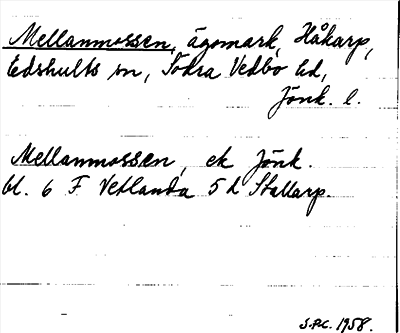 Mellanmossen, ägomark, Håkarp,
Edshults sn, Södra Vedbo hd,
Jönk. l.
Mellanmossen, ek Jönk.
bl. 6 F Vetlanda 5 d Stallarp.
S.P.C. 1958.